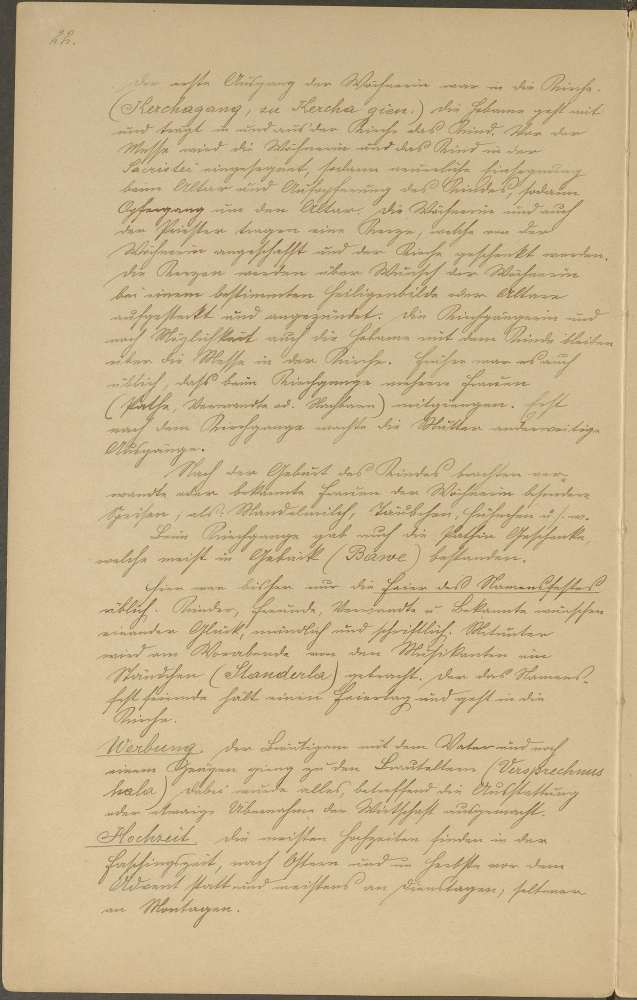 22.
Der erste Ausgang der Wöchnerin war in die Kirche.
(Kerchagang, zu Kercha gien.) Die Hebame geht mit
und trägt in und aus der Kirche das Kind. Vor der
Messe wird die Wöchnerin und das Kind in der
Sacristei eingesegnet, sodann neuerliche Einsegnung
beim Altar und Aufopferung des Kindes, sodann
Opfergang um den Altar. Die Wöchnerin und auch
der Priester tragen eine Kerze, welche von der
Wöchnerin angeschafft und der Kirche geschenkt werden.
Die Kerzen werden über Wunsch der Wöchnerin
bei einem bestimmten Heiligenbilde oder Altare
aufgesteckt und angezündet. Die Kirchgängerin und
nach Möglichkeit auch die Hebame mit dem Kinde bleiben
über die Messe in der Kirche. Früher war es auch
üblich, dass beim Kirchgange mehrere Frauen
(Pathe, Verwandte od. Nachbarn) mitgiengen. Erst
nach dem Kirchgange machte die Mutter anderweitige
Ausgänge.
Nach der Geburt des Kindes brachten ver-
wandte oder bekannte Frauen der Wöchnerin besondere
Speisen, als: Mandelmilch, Täubchen, Hühnchen u. s. w.
Beim Kirchgange gab auch die Pathin Geschenke,
welche meist in Gebäck (Bäwe) bestanden.
Hier war bisher nur die Feier des Namensfestes
üblich. Kinder, Freunde, Verwandte u. Bekannte wünschen
einander Glück, mündlich und schriftlich. Mitunter
wird am Vorabende von den Musikanten ein
Ständchen (Standerla) gebracht. Der das Namens-
fest feiernde hält einen Feiertag und geht in die
Kirche.
Werbung Der Bräutigam mit dem Vater und noch
einem Zeugen gieng zu den Brauteltern (Versprechnus
hala) dabei wurde alles, betreffend die Ausstattung
oder etwaige Übernahme der Wirtschaft ausgemacht.
Hochzeit Die meisten Hochzeiten finden in der
Faschingszeit, nach Ostern und im Herbste vor dem
Advent statt und meistens an Dienstagen; seltener
an Montagen.